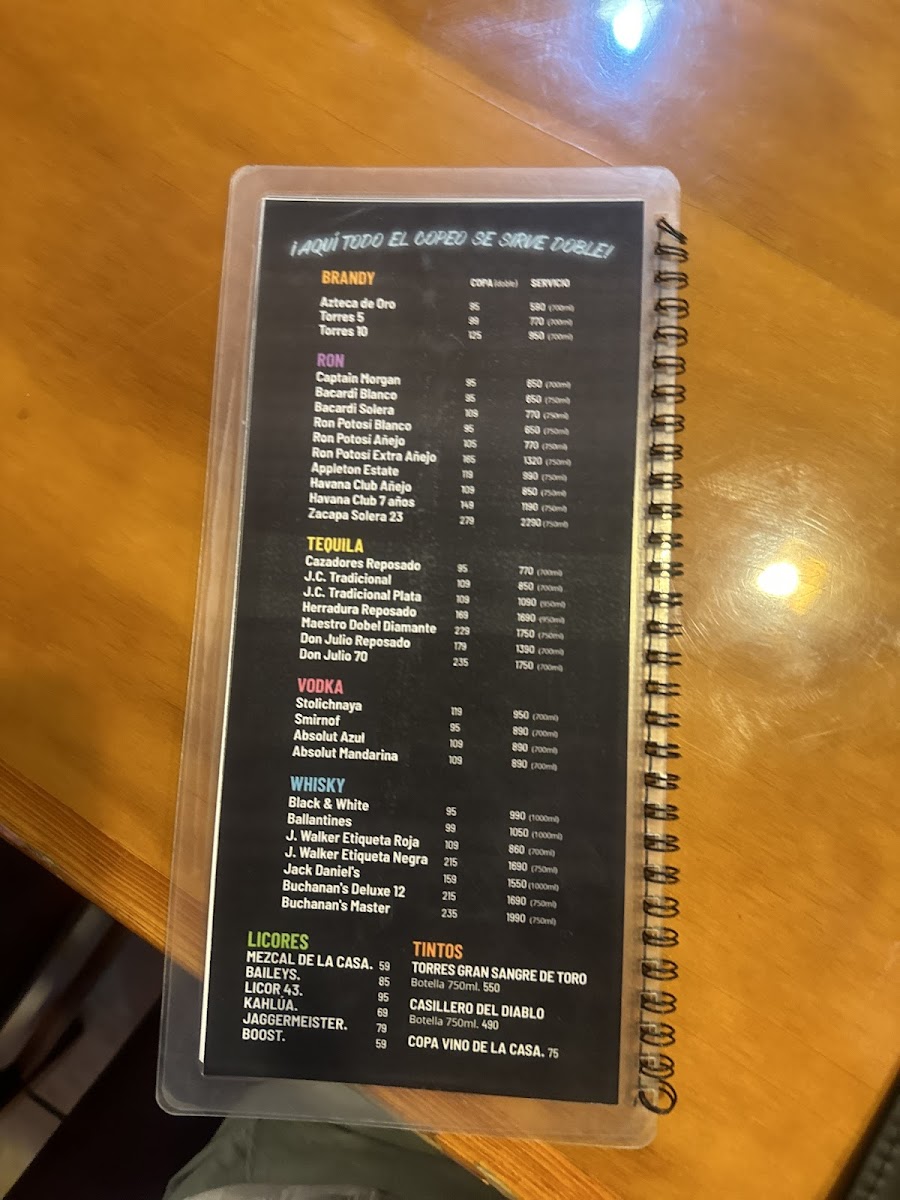 ¡AQUÍ TODO EL COPEO SE SIRVE DOBLE!
BRANDY COPA (doble) SERVICIO
Azteca de Oro 95 590 (700ml)
Torres 5 99 770 (700ml)
Torres 10 125 950 (700ml)
RON
Captain Morgan 95 850 (700ml)
Bacardi Blanco 95 650 (750ml)
Bacardi Solera 109 770 (750ml)
Ron Potosí Blanco 95 650 (750ml)
Ron Potosí Añejo 105 770 (750ml)
Ron Potosí Extra Añejo 165 1320 (750ml)
Appleton Estate 119 990 (750ml)
Havana Club Añejo 109 850 (750ml)
Havana Club 7 años 149 1190 (750ml)
Zacapa Solera 23 279 2290 (750ml)
TEQUILA
Cazadores Reposado 95 770 (700ml)
J.C. Tradicional 109 850 (700ml)
J.C. Tradicional Plata 109 1090 (950ml)
Herradura Reposado 169 1690 (950ml)
Maestro Dobel Diamante 229 1750 (750ml)
Don Julio Reposado 179 1390 (700ml)
Don Julio 70 235 1750 (700ml)
VODKA
Stolichnaya 119 950 (700ml)
Smirnof 95 890 (700ml)
Absolut Azul 109 890 (700ml)
Absolut Mandarina 109 890 (700ml)
WHISKY
Black & White 95 990 (1000ml)
Ballantines 99 1050 (1000ml)
J. Walker Etiqueta Roja 109 860 (700ml)
J. Walker Etiqueta Negra 215 1690 (750ml)
Jack Daniel's 159 1550 (1000ml)
Buchanan's Deluxe 12 215 1690 (750ml)
Buchanan's Master 235 1990 (750ml)
LICORES
MEZCAL DE LA CASA. 59
BAILEYS. 85
LICOR 43. 95
KAHLÚA. 69
JAGGERMEISTER. 79
BOOST. 59
TINTOS
TORRES GRAN SANGRE DE TORO
Botella 750ml. 550
CASILLERO DEL DIABLO
Botella 750ml. 490
COPA VINO DE LA CASA. 75